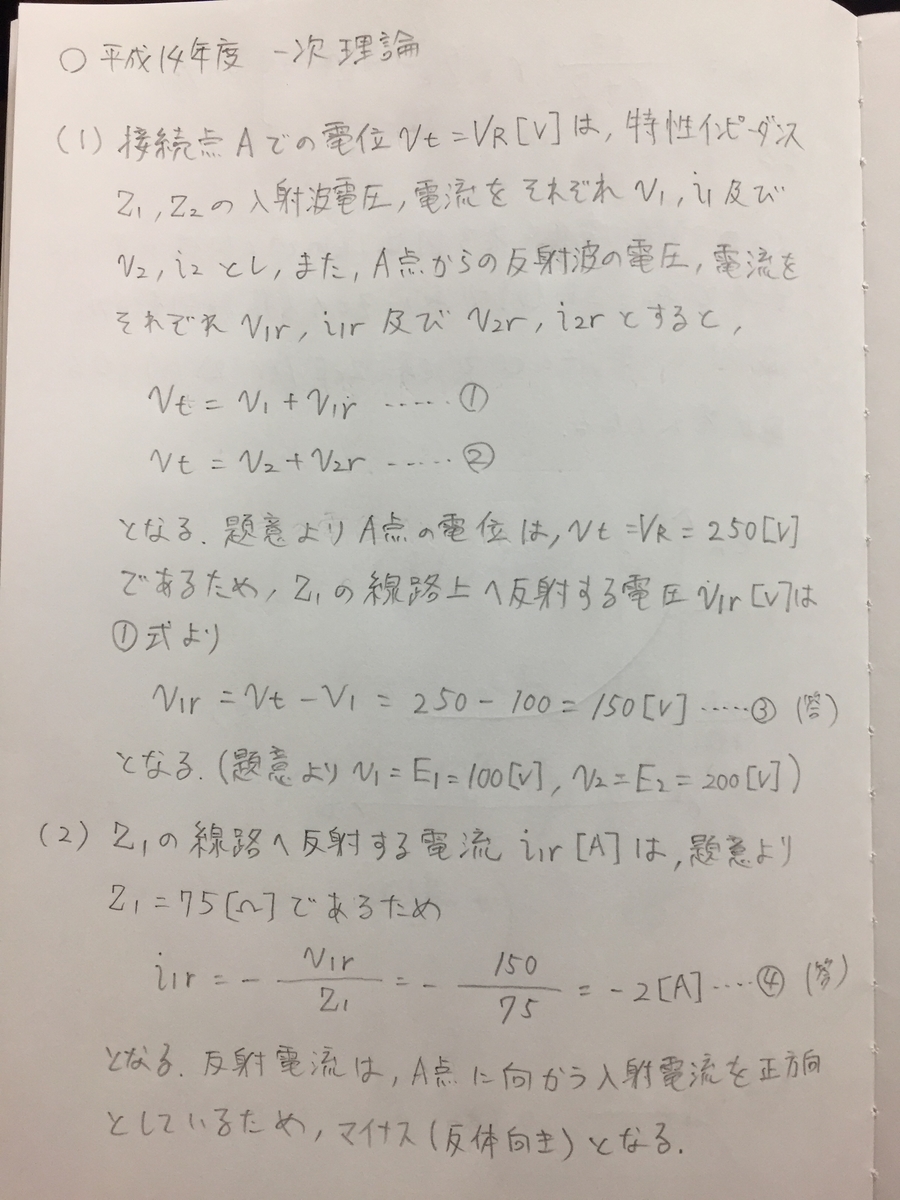 ○ 平成14年度 一次 理論
(1) 接続点 A での電位 Vt = VR [V] は, 特性インピーダンス
Z1, Z2 の入射波電圧, 電流をそれぞれ V1, i1 及び
V2, i2 とし, また, A点からの反射波の電圧, 電流を
それぞれ V1r, i1r 及び V2r, i2r とすると,
Vt = V1 + V1r ...... ①
Vt = V2 + V2r ...... ②
となる. 題意より A点の電位は, Vt = VR = 250 [V]
であるため, Z1 の線路上へ反射する電圧 V1r [V] は
①式より
V1r = Vt - V1 = 250 - 100 = 150 [V] ...... ③ (答)
となる. (題意より V1 = E1 = 100 [V], V2 = E2 = 200 [V])
(2) Z1 の線路へ反射する電流 i1r [A] は, 題意より
Z1 = 75 [Ω] であるため
i1r = - V1r / Z1 = - 150 / 75 = - 2 [A] .... ④ (答)
となる. 反射電流は, A点に向かう入射電流を正方向
としているため, マイナス (反体向き) となる.